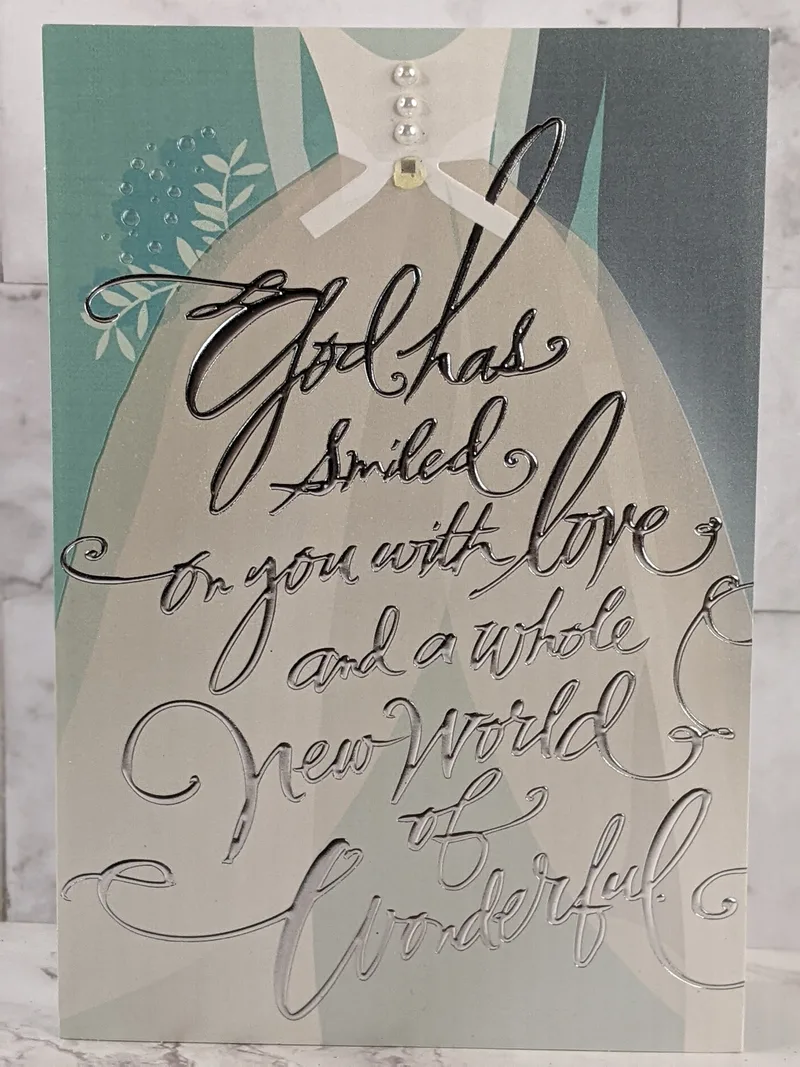 God has
smiled
on you with love
and a whole
new World
of
Wonderful.